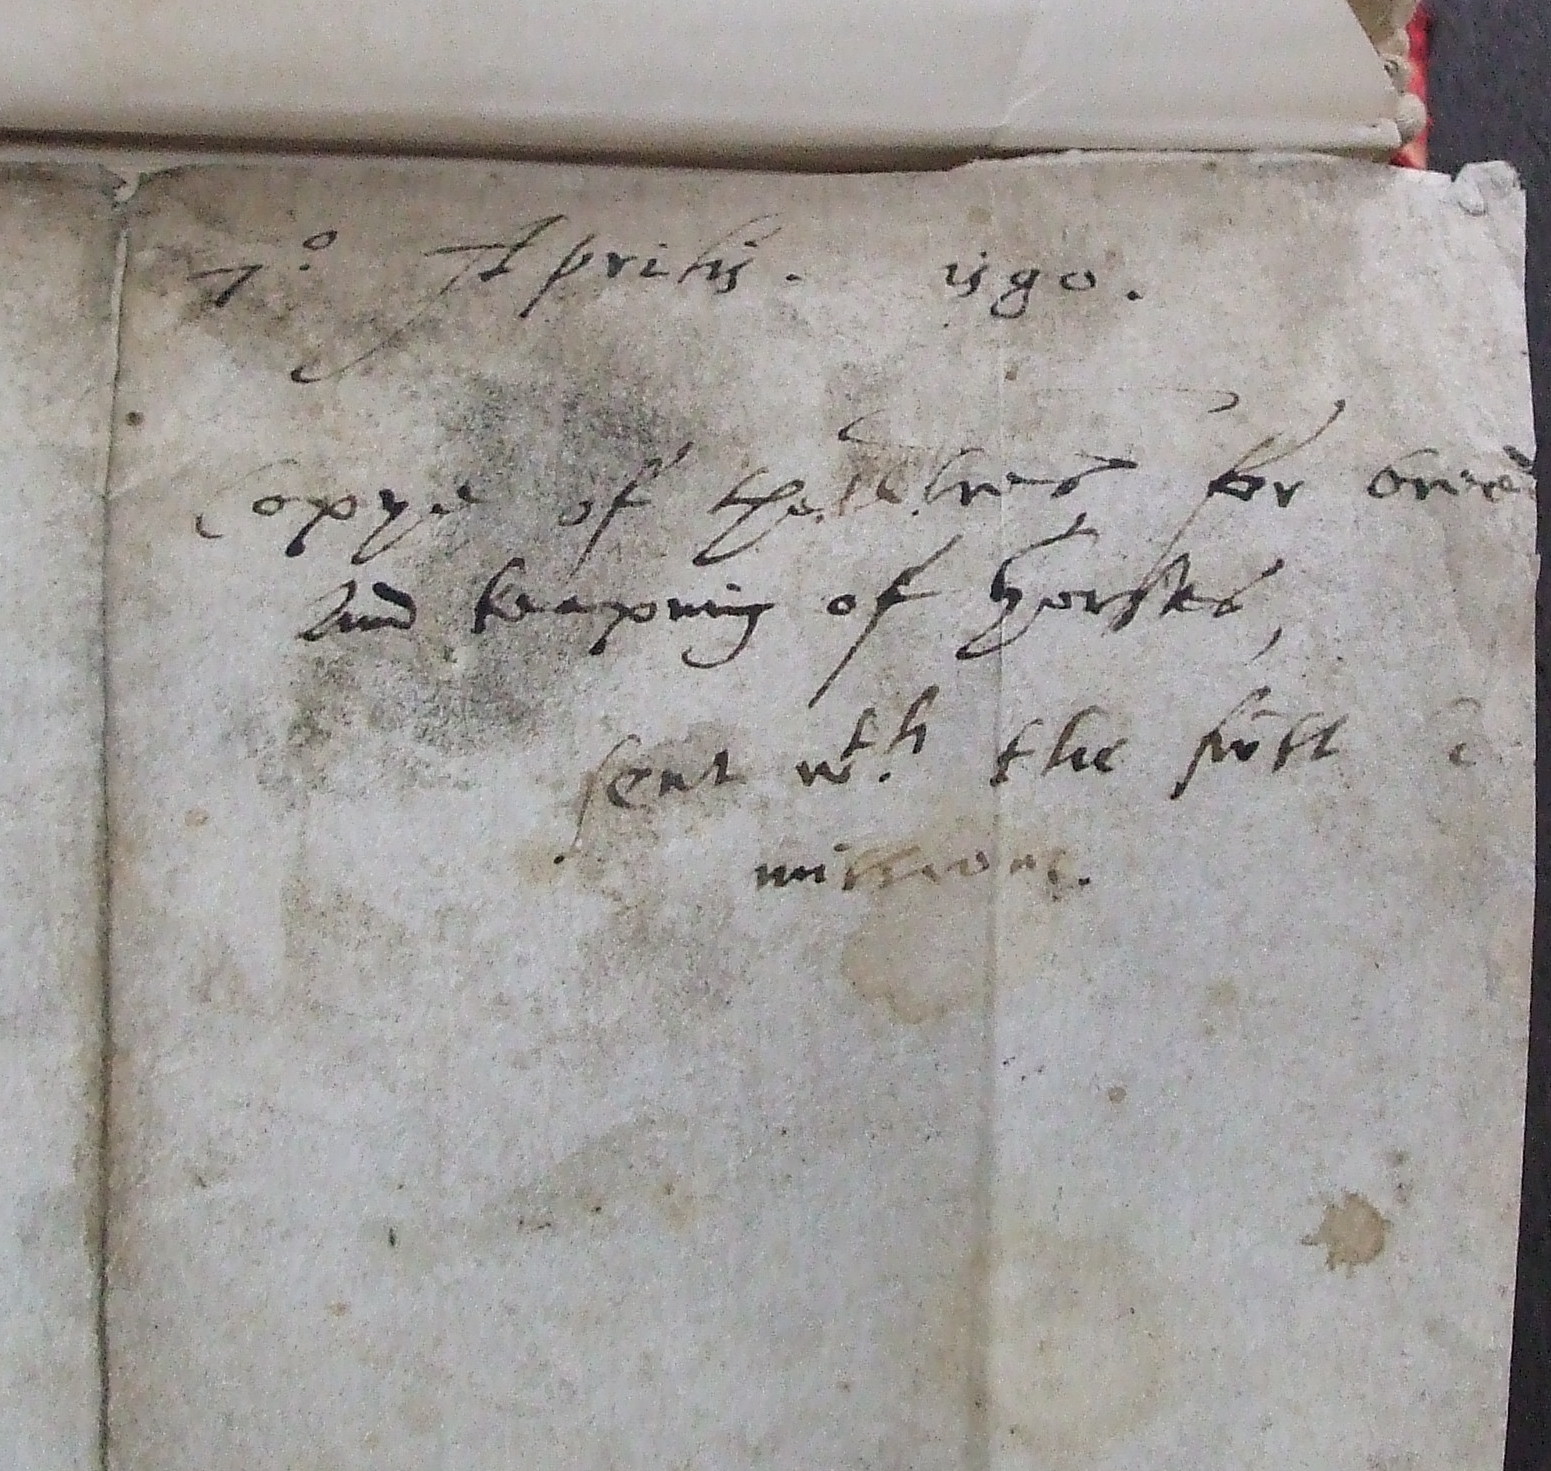 7o Aprilis. 1590.
Copye of the lres for
and keaping of horses,
sent wth the first
missions.